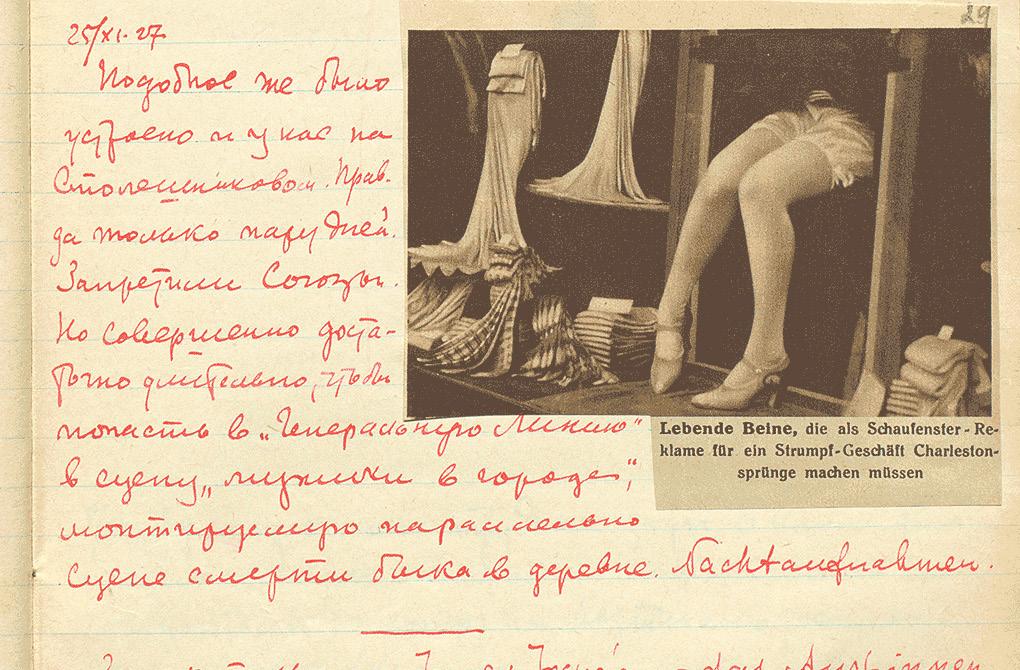 29
25/XI. 27
Подобное же было
устроено и у нас на
Столешниковом. Прав-
да только пару дней.
Запретили Союзы.
Но совершенно доста-
точно длительно, чтобы
попасть в „Генеральную Линию"
в сцену „мужики в городе",
монтируемую параллельно
сцене смерти быка в деревне. Nachtaufnahmen.
Lebende Beine, die als Schaufenster-Re-
klame für ein Strumpf-Geschäft Charleston-
sprünge machen müssen